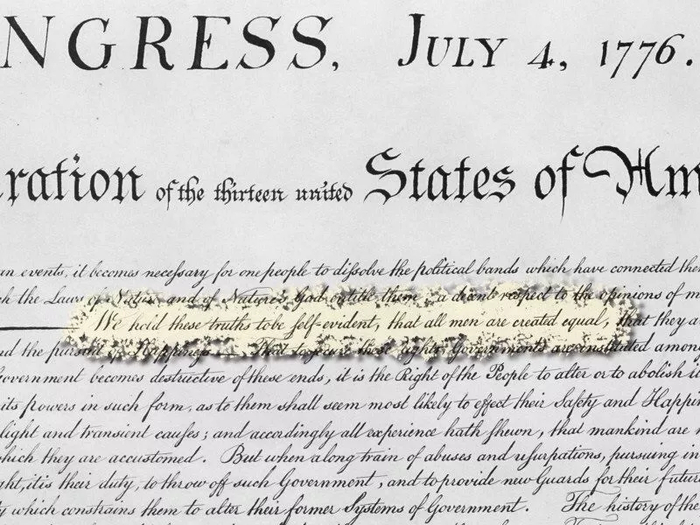 NGRESS, JULY 4, 1776.
ration of the thirteen united States of Am
an events, it becomes necessary for one people to dissolve the political bands which have connected the
the Laws of Nature and of Nature's God entitle them, a decent respect to the opinions of m
We hold these truths to be self-evident, that all men are created equal, that they a
the pursuit of Happiness. — That to secure these rights, Governments are instituted amon
Government becomes destructive of these ends, it is the Right of the People to alter or to abolish it
its powers in such form, as to them shall seem most likely to effect their Safety and Happin
light and transient causes; and accordingly all experience hath shewn, that mankind are
which they are accustomed. But when a long train of abuses and usurpations, pursuing in
it is their duty, to throw off such Government, and to provide new Guards for their futur
which constrains them to alter their former Systems of Government. The history of the